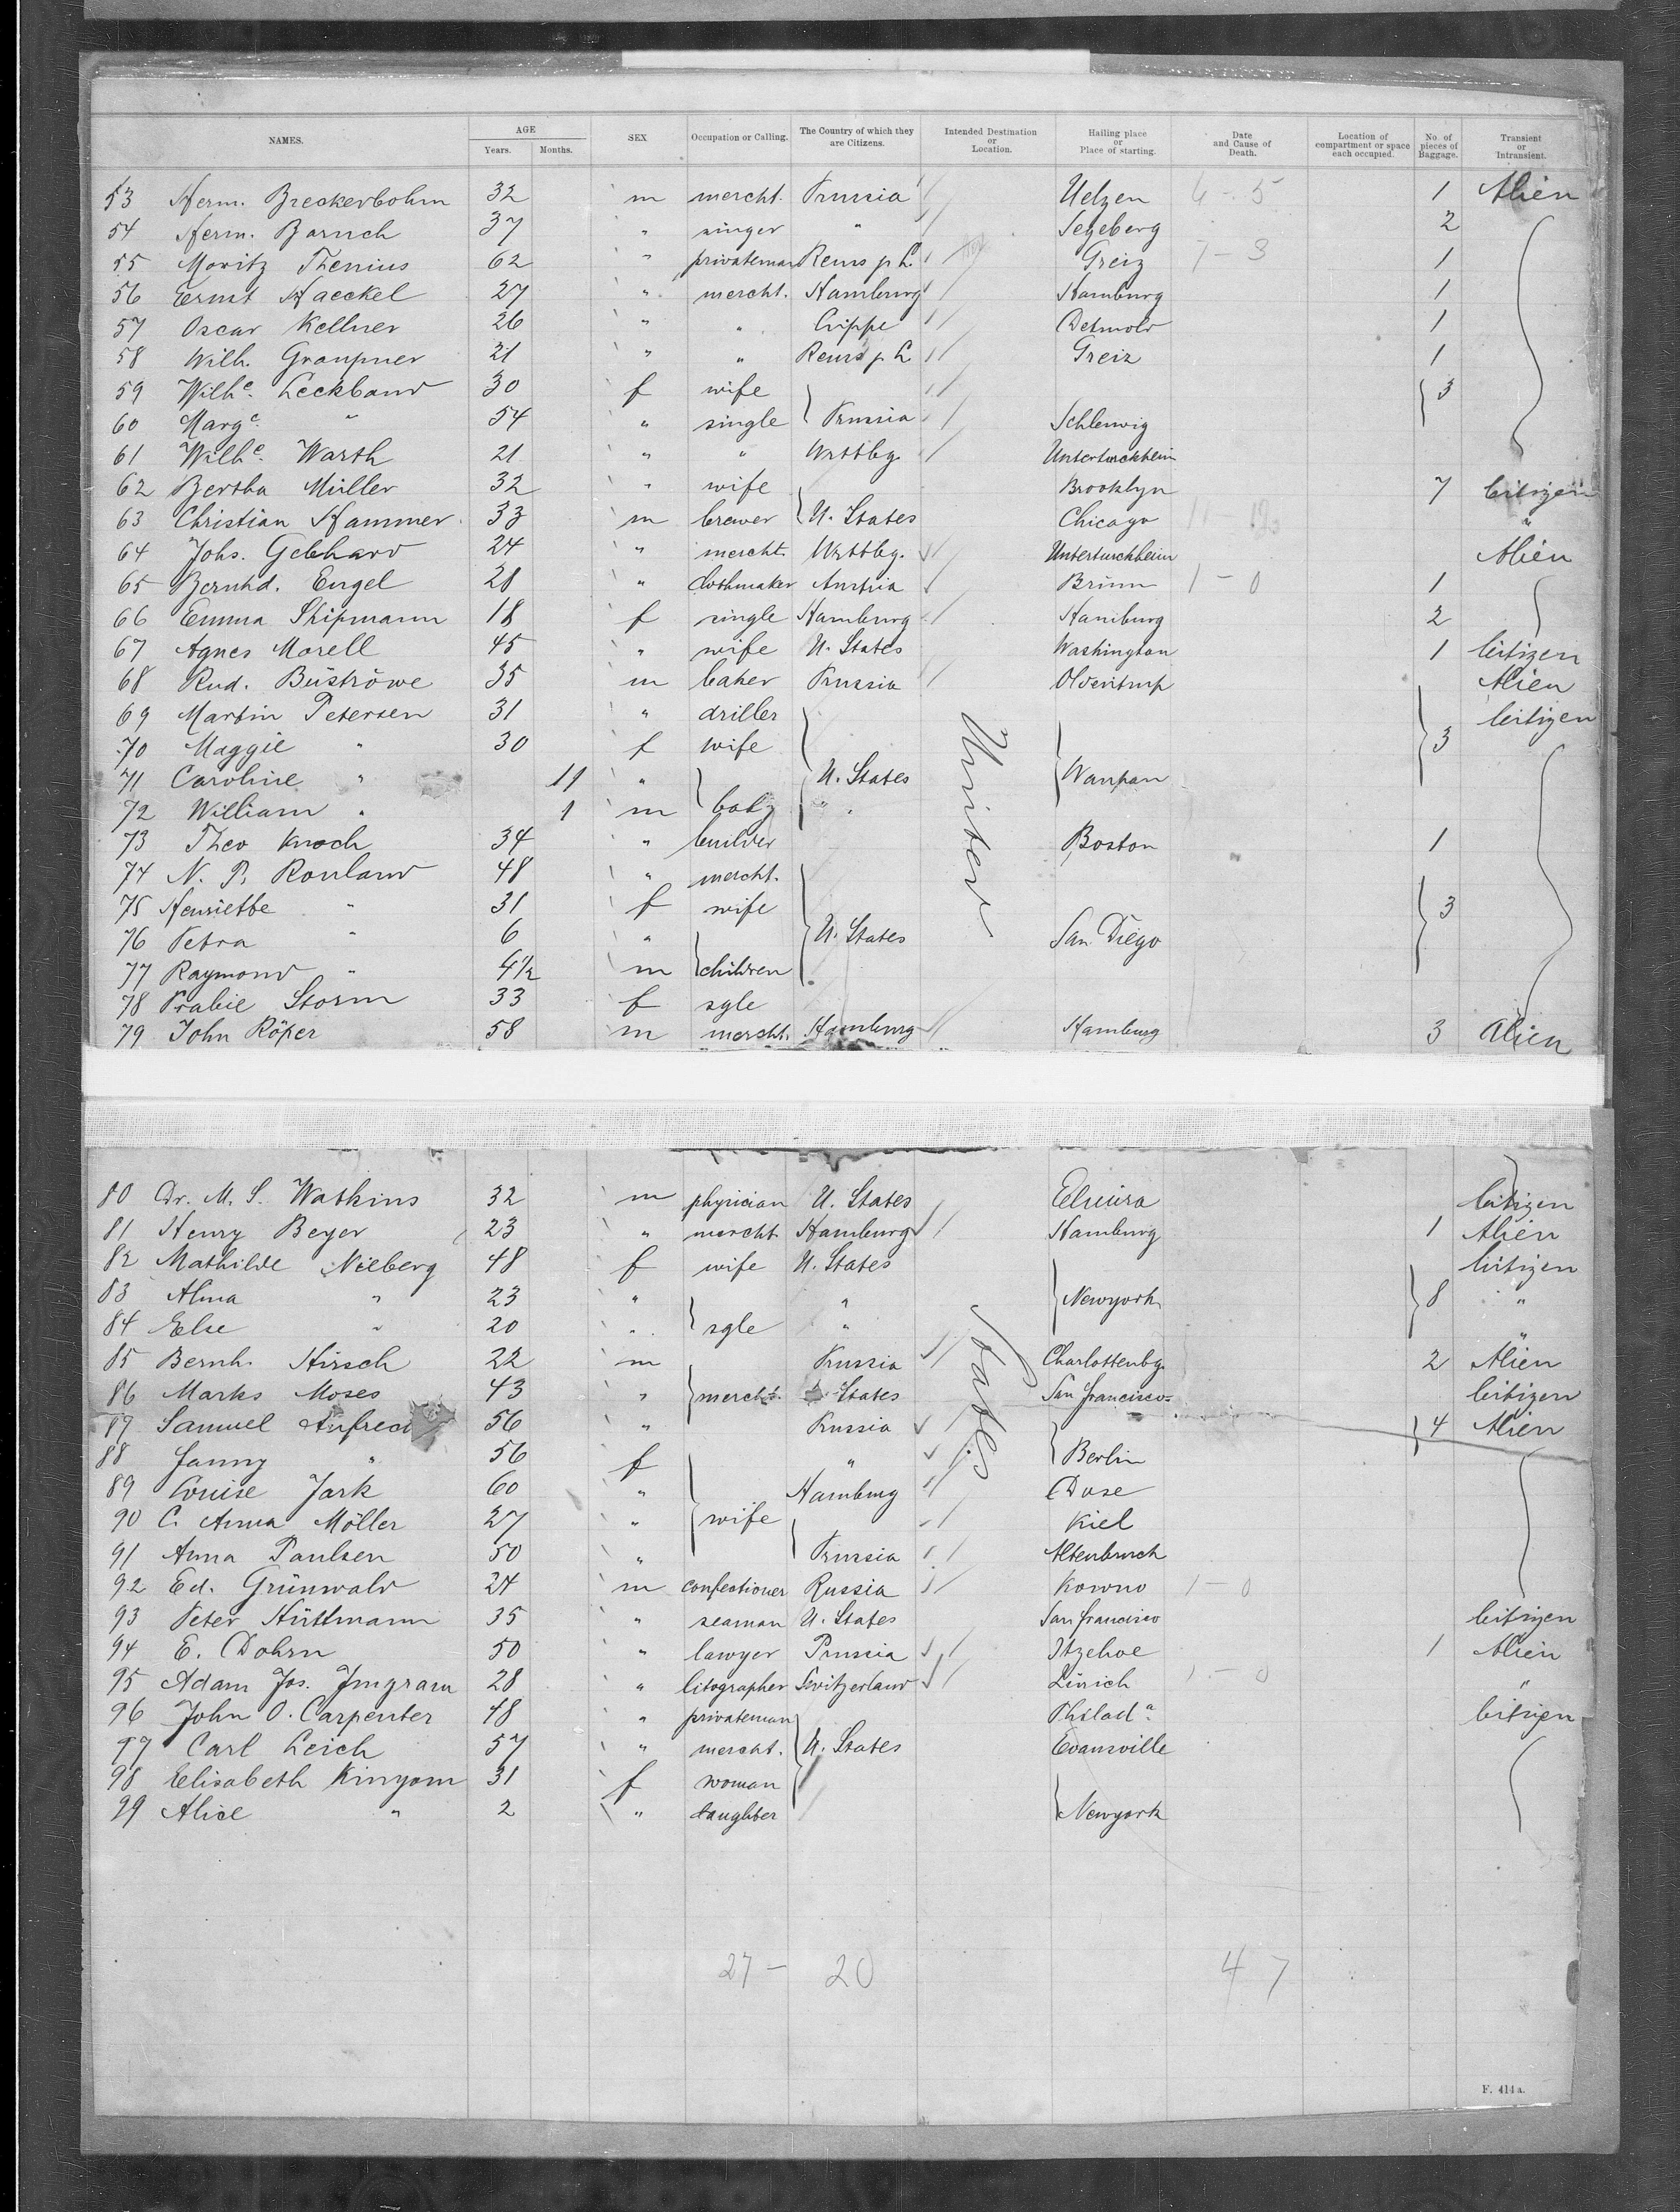 NAMES. AGE Years. Months. SEX Occupation or Calling. The Country of which they are Citizens. Intended Destination or Location. Hailing place or Place of starting. Date and Cause of Death. Location of compartment or space each occupied. No. of pieces of Baggage. Transient or Intransient.
53 Herm. Breckerbohm 32 m mercht. Prussia Uelzen 6-5 1 Alien
54 Herm. Baruch 37 " singer " Segeberg 2
55 Moritz Thenius 62 " privateman Reuss j. L. Greiz 7-3 1
56 Ernst Haeckel 27 " mercht. Hamburg Hamburg 1
57 Oscar Kellner 26 " " Lippe Detmold 1
58 Wilh. Graupner 21 " " Reuss j. L. Greiz 1
59 Wilhe. Leckband 30 f wife 3
60 Marge. " 54 " single Prussia Schleswig
61 Wilhe. Warth 21 " " Wrttbg. Unterturckheim
62 Bertha Müller 32 " wife Brooklyn 7 Citizen
63 Christian Hammer 33 m brewer U. States Chicago "
64 Johs. Gebhard 24 " mercht. Wrttbg. Unterturckheim Alien
65 Bernhd. Engel 28 " clothmaker Austria Brünn 1-0 1
66 Emma Shipmann 18 f single Hamburg Hamburg 2
67 Agnes Morell 45 " wife U. States Washington 1 Citizen
68 Rud. Büströwe 35 m baker Prussia Oldentrup Alien
69 Martin Petersen 31 " driller Citizen
70 Maggie " 30 f wife 3
71 Caroline " 11 " U. States Waupan
72 William " 1 m baby "
73 Theo Knoch 34 " builder Boston 1
74 N. P. Rouland 48 " mercht.
75 Henriette " 31 f wife 3
76 Petra " 6 " U. States San Diego
77 Raymond " 4½ m children
78 Storm 33 f sgle
79 John Röper 58 m mercht. Hamburg Hamburg 3 Alien
United
80 Dr. M. S. Watkins 32 m physician U. States Elmira Citizen
81 Henry Beyer 23 " mercht. Hamburg Hamburg 1 Alien
82 Mathilde Nieberg 48 f wife U. States Citizen
83 Alma " 23 " " Newyork 8 "
84 Else " 20 " sgle " "
85 Bernh. Hirsch 22 m Prussia Charlottenbg. 2 Alien
86 Marks Moses 43 " mercht. U. States San Francisco Citizen
87 Samuel 56 " Prussia 4 Alien
88 Fanny " 56 f " Berlin
89 Louise Jark 60 " Hamburg Dose
90 C. Anna Möller 27 " wife Kiel
91 Anna Paulsen 50 " Prussia Altenbruch
92 Ed. Grünwald 24 m confectioner Russia Kowno 1-0
93 Peter Hüttmann 35 " seaman U. States San Francisco Citizen
94 E. Dohrn 50 " lawyer Prussia Itzehoe 1 Alien
95 Adam Jos. Imgram 28 " litographer Switzerland Zürich 1-0 "
96 John O. Carpenter 48 " privateman Philada. Citizen
97 Carl Leich 57 " mercht. U. States Evansville
98 Elisabeth Kinyom 31 f woman
99 Alice " 2 " daughter Newyork
States.
27 - 20 47
F. 414a.